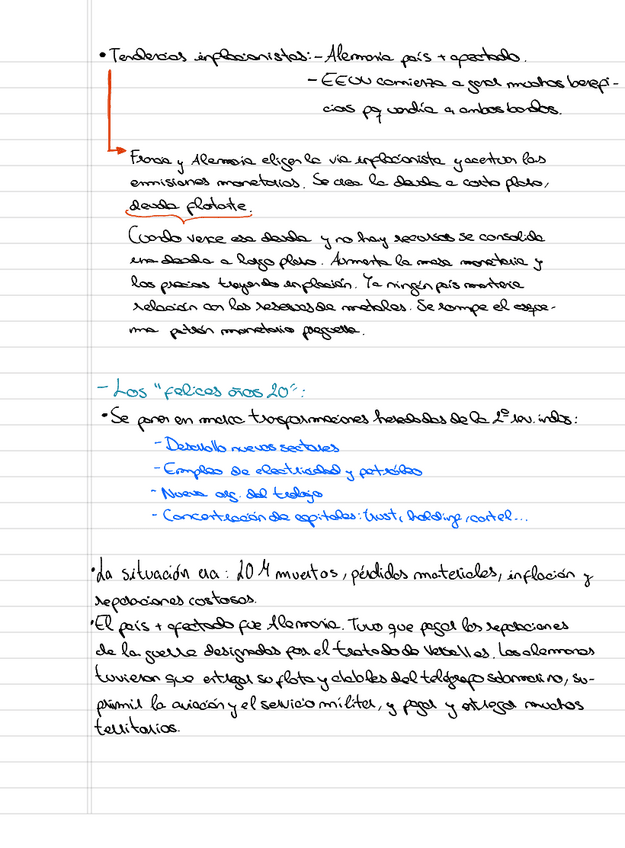 • Tendencias inflacionistas: - Alemania país + afectado.
- EEUU comienza a gnal muchos benefi-
cios pq vendía a ambos bandos.
Francia y Alemania eligen la vía inflacionista y acentúan las
emmisiones monetarias. Se crea la deuda a corto plazo,
deuda flotante.
Cuando vence esa deuda y no hay recursos se consolida
una deuda a largo plazo. Aumenta la masa monetaria y
los precios trayendo inflación. Ya ningún país mantiene
relación con las reservas de metales. Se rompe el esque-
ma patrón monetario preguerra.
- Los "felices años 20":
• Se ponen en marca trasformaciones heredadas de la 2º rev. indus:
- Desarrollo nuevos sectores
- Empleo de electricidad y petróleo
- Nueva org. del trabajo
- Concentración de capitales: trust, holding, cartel...
• La situación era: 20 M muertos, pérdidas materiales, inflación y
reparaciones costosas.
• El país + afectado fue Alemania. Tuvo que pagar las reparaciones
de la guerra designadas por el tratado de Versalles. Los alemanes
tuvieron que entregar su flota y clables del telégrafo submarino, su-
primir la aviación y el servicio militar, y pagar y entregar muchos
territorios.